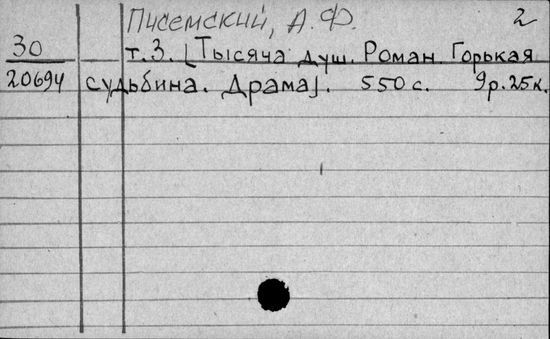 Писемский, А. Ф. 2
30 т. 3. [Тысяча душ. Роман. Горькая
20694 судьбина. Драма]. 550 с. 9р. 25к.